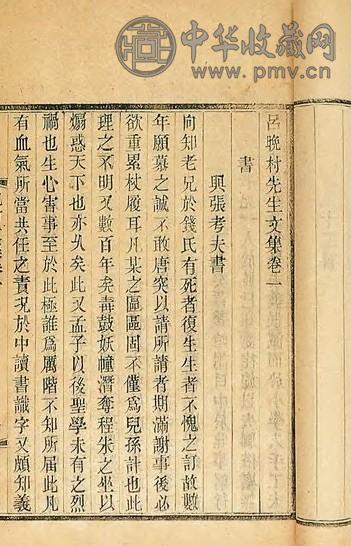 中华收藏网
www.pmv.cn
呂晚村先生文集卷一
書
與張考夫書
向知老兄於錢氏有死者復生生者不愧之訂故數
年願慕之誠不敢唐突以請所請者期滿謝事後必
欲重累杖履耳凡某之區區固不僅爲兒孫計也此
理之不明又數百年矣毒鼓妖幢潛奪程朱之坐以
煽惑天下也亦久矣此又孟子以後聖學未有之烈
禍也生心害事至於此極誰爲厲階不知所屆此凡
有血氣所當共任之責況於中讀書識字又頗知義